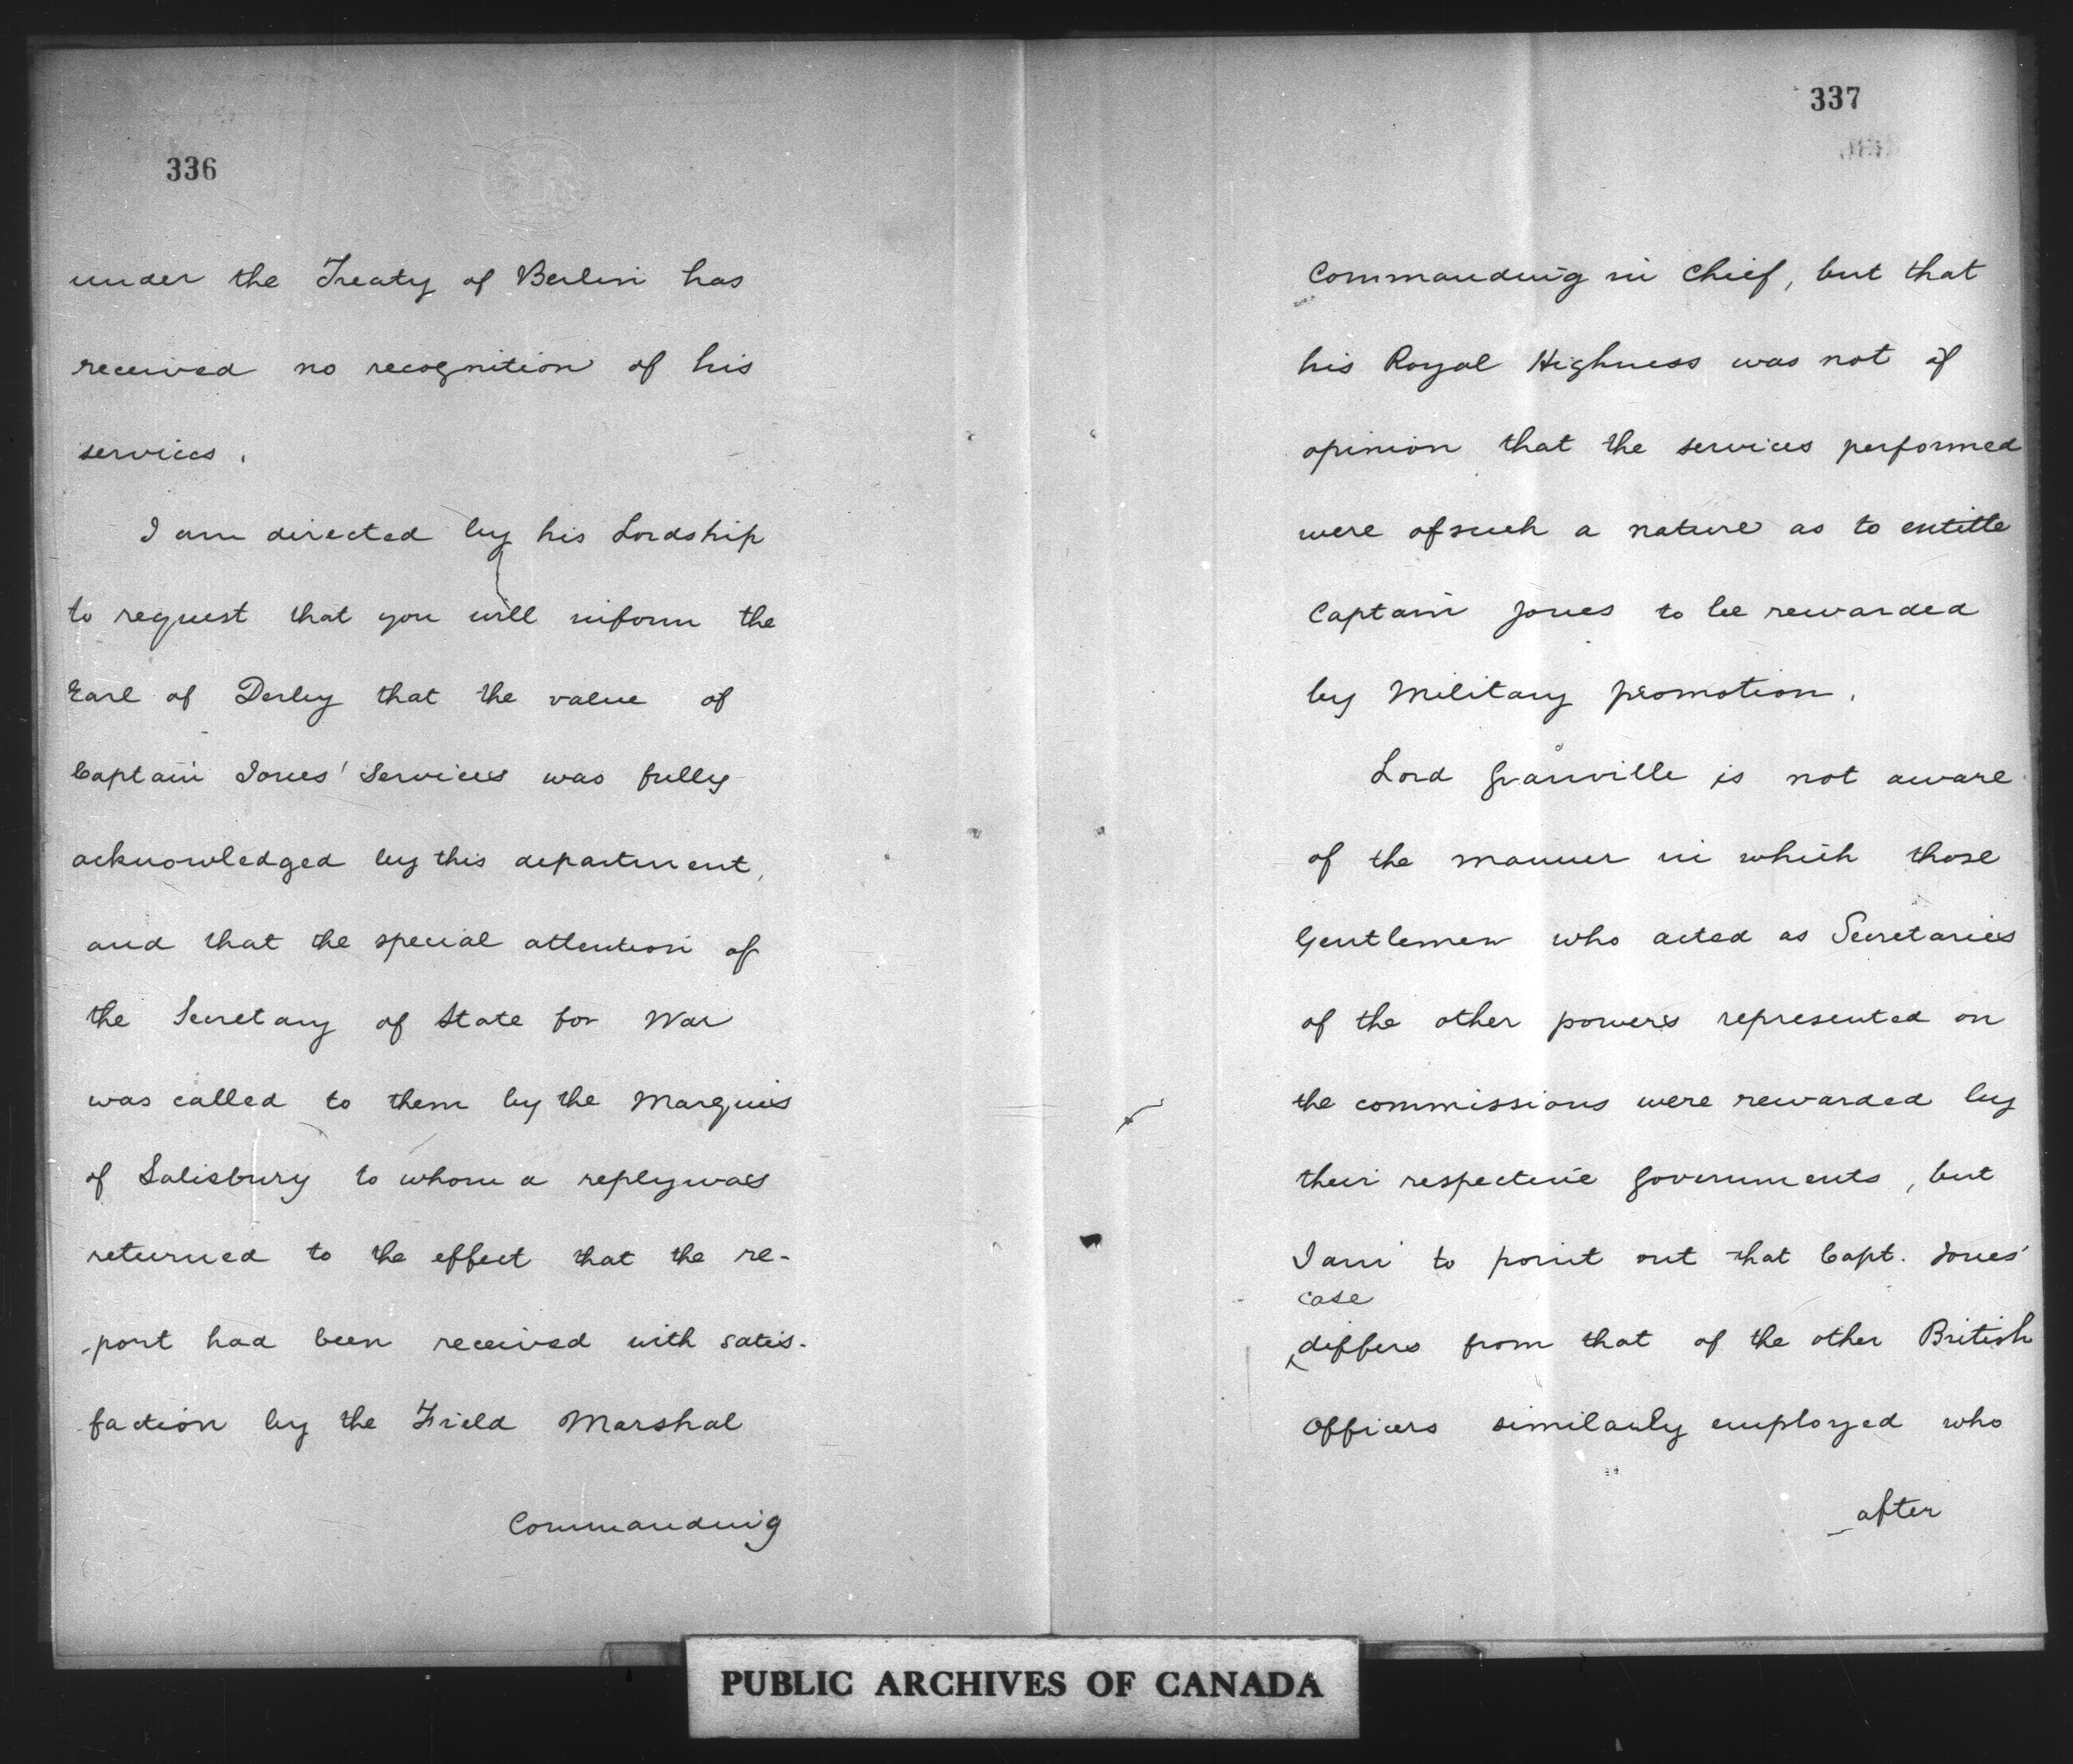 336
under the Treaty of Berlin has
received no recognition of his
services.
I am directed by his Lordship
to request that you will inform the
Earl of Derby that the value of
Captain Jones' Services was fully
acknowledged by this department,
and that the special attention of
the Secretary of State for War
was called to them by the Marquis
of Salisbury to whom a reply was
returned to the effect that the re-
-port had been received with satis-
faction by the Field Marshal
Commanding
337
Commanding in Chief, but that
his Royal Highness was not of
opinion that the services performed
were of such a nature as to entitle
Captain Jones to be rewarded
by Military promotion.
Lord Granville is not aware
of the manner in which those
Gentlemen who acted as Secretaries
of the other powers represented on
the commissions were rewarded by
their respective Governments, but
I am to point out that Capt. Jones'
case
differs from that of the other British
Officers similarly employed who
after
PUBLIC ARCHIVES OF CANADA